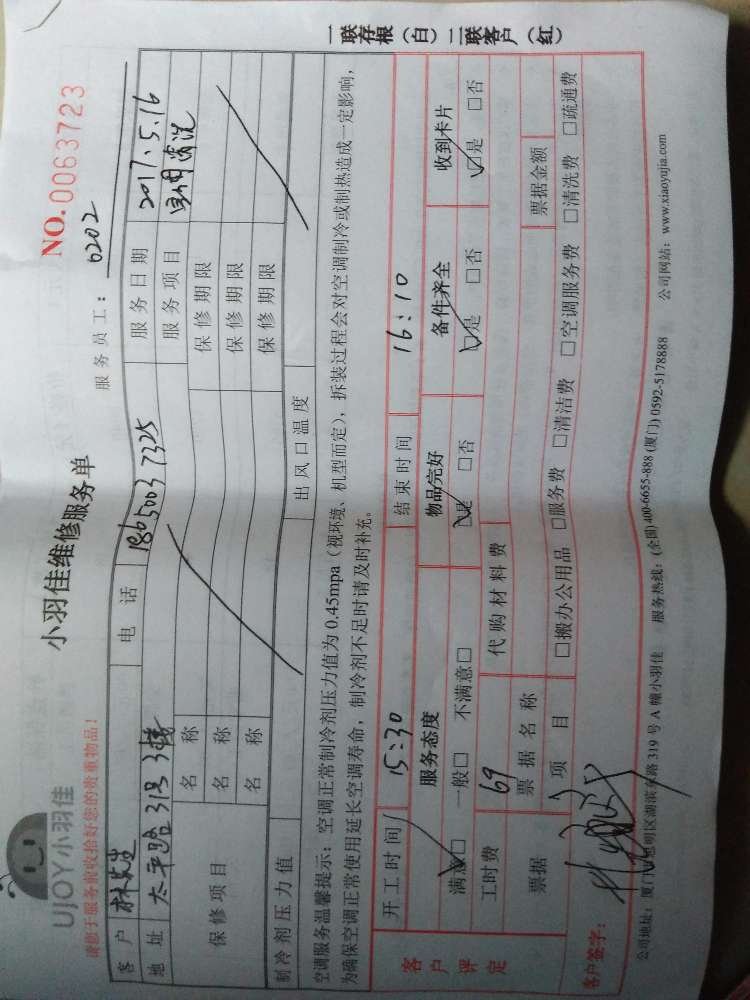 UJOY小羽佳
请您于服务前收拾好您的贵重物品!
小羽佳维修服务单
NO.0063723
服务员工: 6202
客户 电话 18650037325 服务日期 2017.5.16
地址 太平路 服务项目 清洗
保修项目 名称 保修期限
名称 保修期限
名称 保修期限
制冷剂压力值 出风口温度
空调服务温馨提示:空调正常制冷剂压力值为0.45mpa(视环境、机型而定),拆装过程会对空调制冷或制热造成一定影响,
为确保空调正常使用延长空调寿命,制冷剂不足时请及时补充。
客户评定
开工时间 15:30 结束时间 16:10
服务态度 物品完好 备件齐全 收到卡片
满意□ 一般□ 不满意□ □是 □否 □是 □否 □是 □否
工时费 69 代购材料费
票据 票据名称 票据金额
项目 □搬办公用品 □服务费 □清洁费 □空调服务费 □清洗费 □疏通费
客户签字:
公司地址:厦门市思明区湖滨东路319号A幢小羽佳 服务热线:(全国)400-6655-888 (厦门)0592-5178888 公司网站:www.xiaoyujia.com
一联存根(白)二联客户(红)